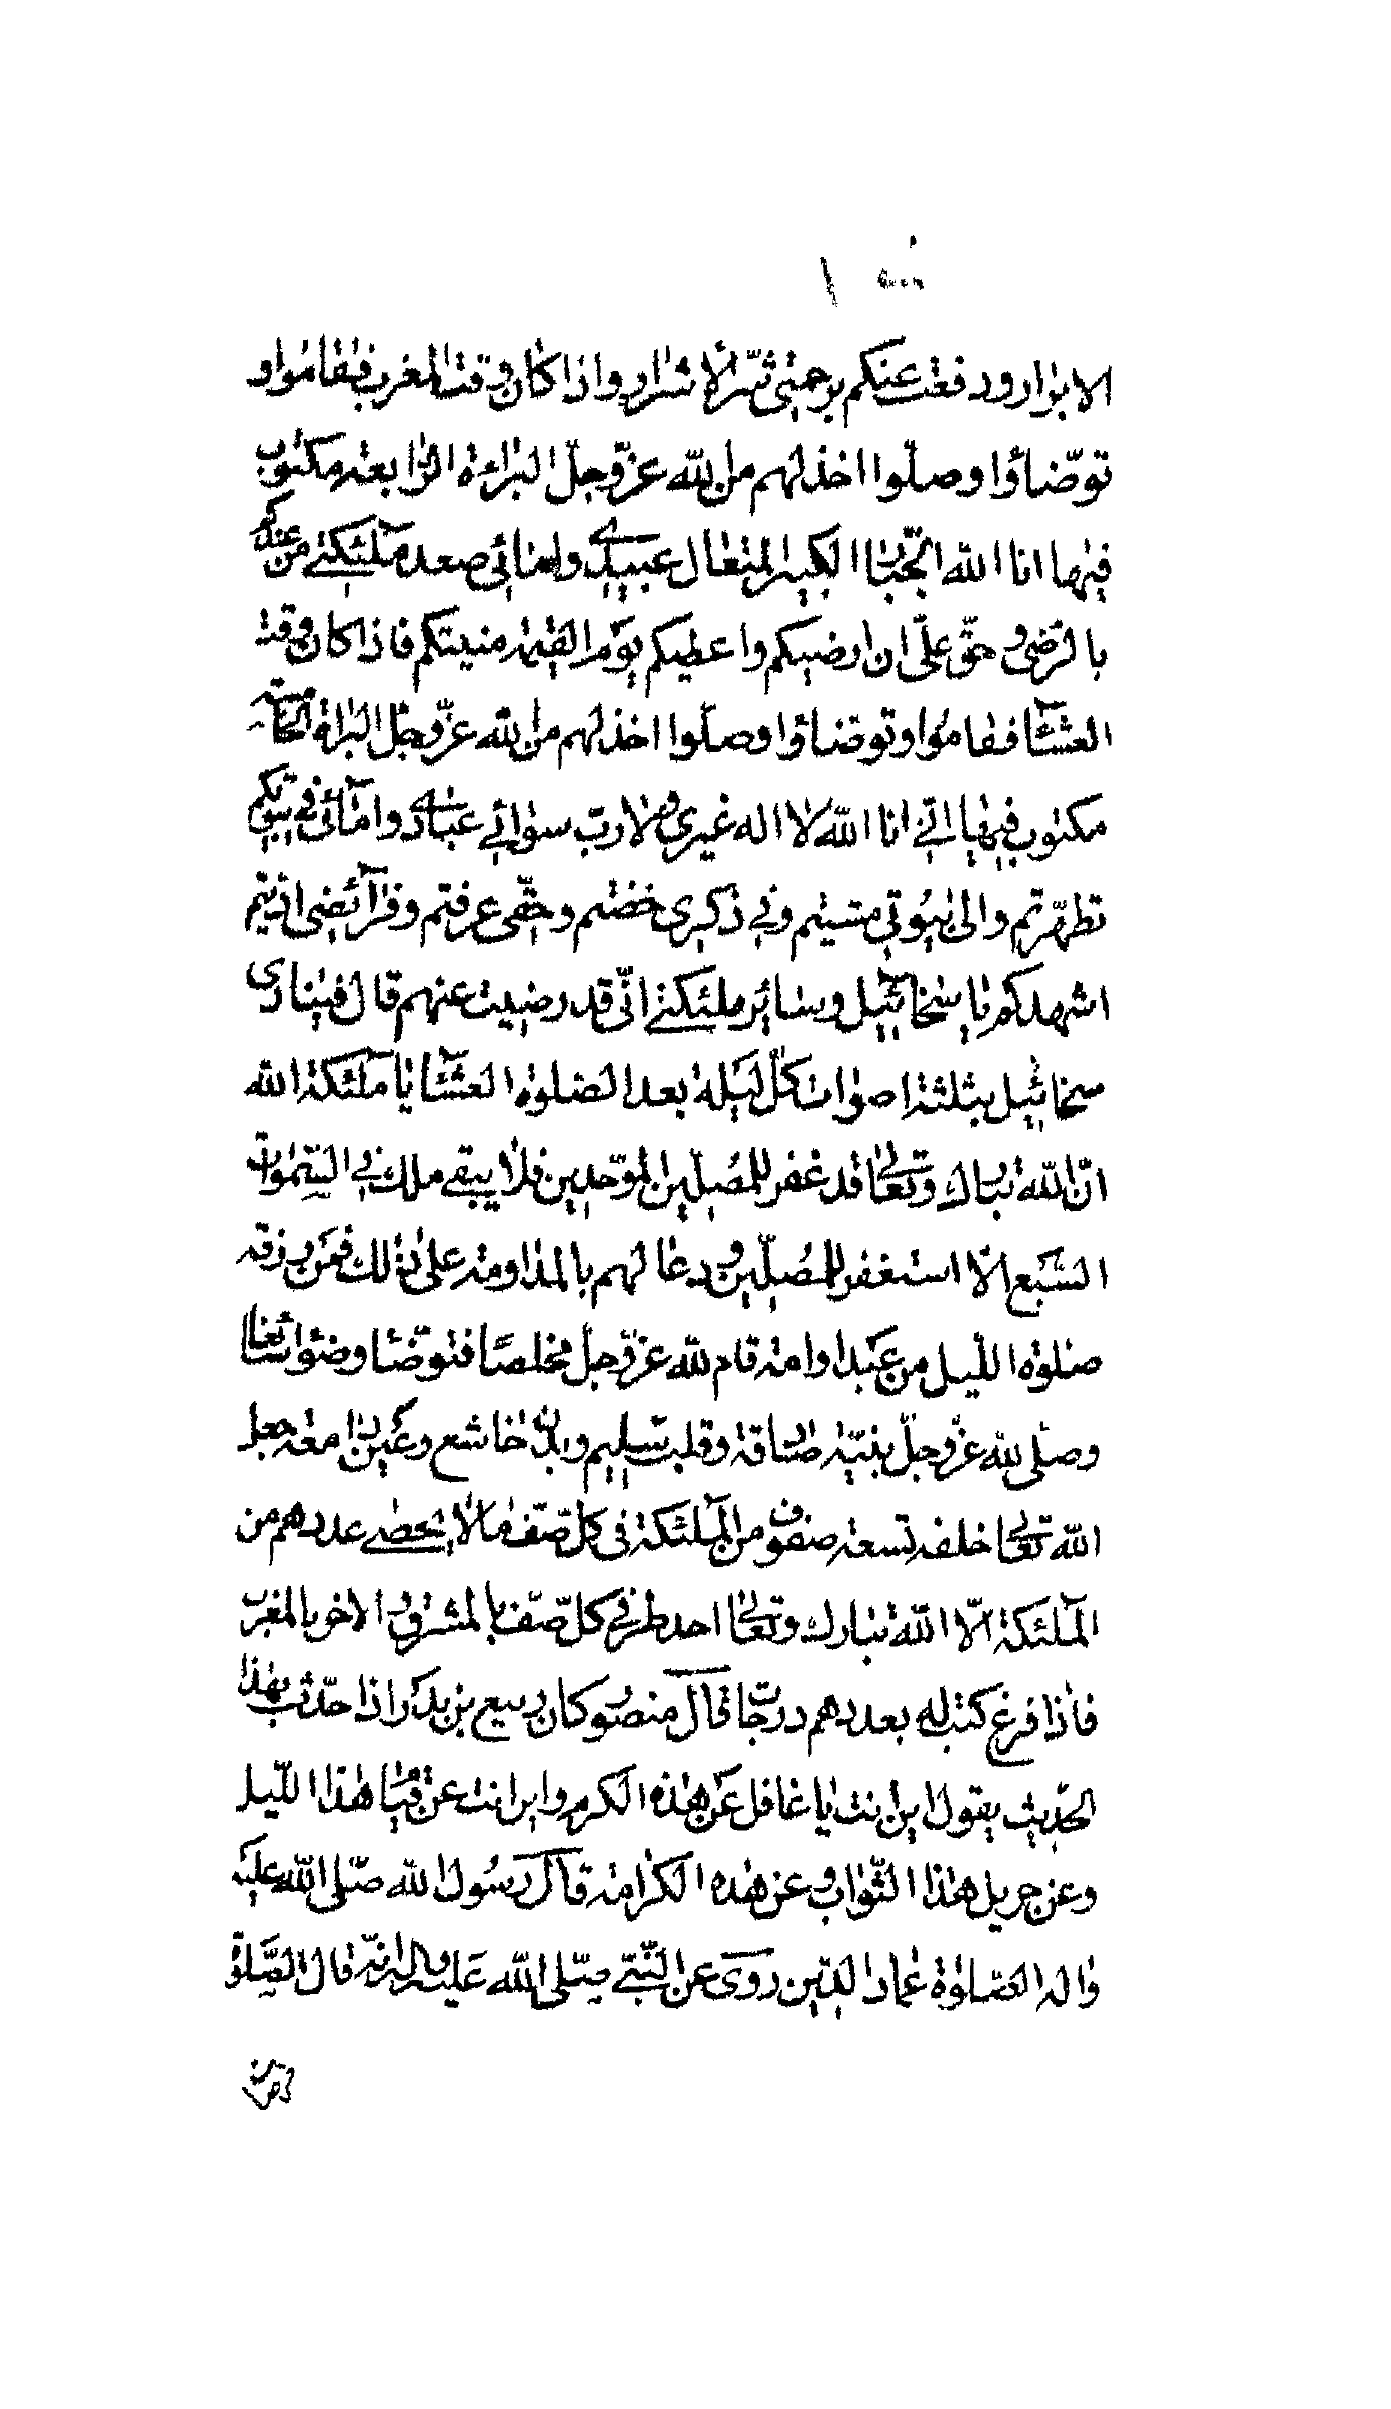 الابرار ودفعت عنكم برحمتي شر الأشرار واذا كان وقت المغرب فقاموا و
توضّاؤا وصلّوا اخذ لهم من الله عزّ وجلّ البراءة الرابعة مكتوب
فيها انا الله الجبّار الكبير المتعال عبيدي وامائي صعد ملئكتي من عندكم
بالرّضى وحقّ علىّ ان ارضيكم واعطيكم يوم القيمة منيتكم فاذا كان وقت
العشآء فقاموا وتوضاؤا وصلّوا اخذ لهم من الله عزّ وجلّ البراة الخامسة
مكتوب فيها انّي انا الله لا اله غيري ولا ربّ سوائي عبادي وامآئي في بيوتكم
تطهّرتم والى بيوتي مشيتم وفي ذكري خضتم وحقّي عرفتم وفرآئضي ادّيتم
اشهدكم يا سخائيل وسائر ملئكتي انّي قد رضيت عنهم قال فينادى
سخائيل بثلثة اصوات كلّ ليلة بعد الصلوة العشآء يا ملئكة الله
انّ الله تبارك وتعالى قد غفر للمصلّين الموحّدين فلا يبقى ملك في السّموات
السّبع الّا استغفر للمصلّين ودعا لهم بالمداومة على ذلك فمن رزقه
صلوة اللّيل من عبد او امة قام لله عزّ وجلّ مخلصًا فتوضّا وضوا سابغا
وصلّى لله عزّ وجلّ بنيّة صادقة وقلب سليم وبدن خاشع وعين دامعة جعل
الله تعالى خلفه تسعة صفوف من الملئكة في كلّ صفّ ما لا يحصى عددهم من
الملئكة الّا الله تبارك وتعالى احد طرفي كلّ صفّ بالمشرق والاخر بالمغرب
فاذا فرغ كتب له بعددهم درجات قال منصور كان ربيع بن بدر اذا حدّث بهذا
الحديث يقول اين انت يا غافل عن هذه الكرم واين انت عن قيام هذا اللّيل
وعن جزيل هذا الثّواب وعن هذه الكرامة قال رسول الله صلّى الله عليه
واله الصّلوة عماد الدّين روى عن النّبيّ صلّى الله عليه واله انّه قال الصّلوة